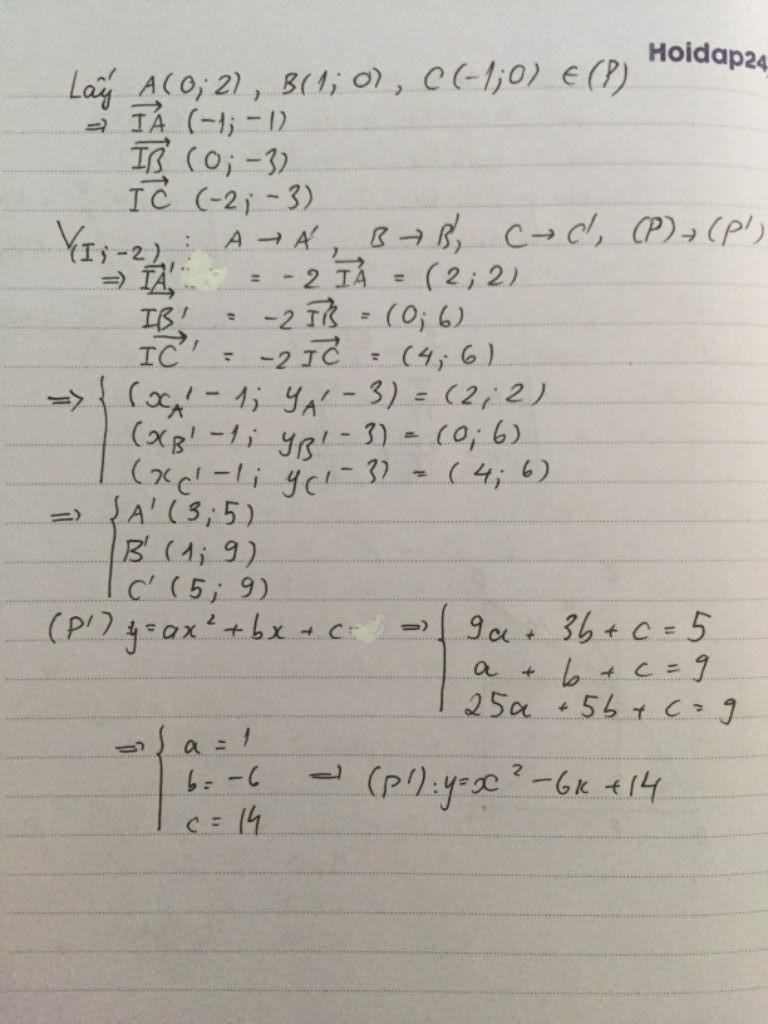 Hoidap24
Lấy A(0; 2), B(1; 0), C(-1; 0) ∈ (P)
⇒ →IA (-1; -1)
→IB (0; -3)
→IC (-2; -3)
V(I; -2) : A → A', B → B', C → C', (P) → (P')
⇒ →IA' = -2 →IA = (2; 2)
→IB' = -2 →IB = (0; 6)
→IC' = -2 →IC = (4; 6)
⇒ { (xA' - 1; yA' - 3) = (2; 2)
(xB' - 1; yB' - 3) = (0; 6)
(xC' - 1; yC' - 3) = (4; 6)
⇒ { A' (3; 5)
B' (1; 9)
C' (5; 9)
(P') y = ax² + bx + c ⇒ { 9a + 3b + c = 5
a + b + c = 9
25a + 5b + c = 9
⇒ { a = 1
b = -6 ⇒ (P'): y = x² - 6x + 14
c = 14